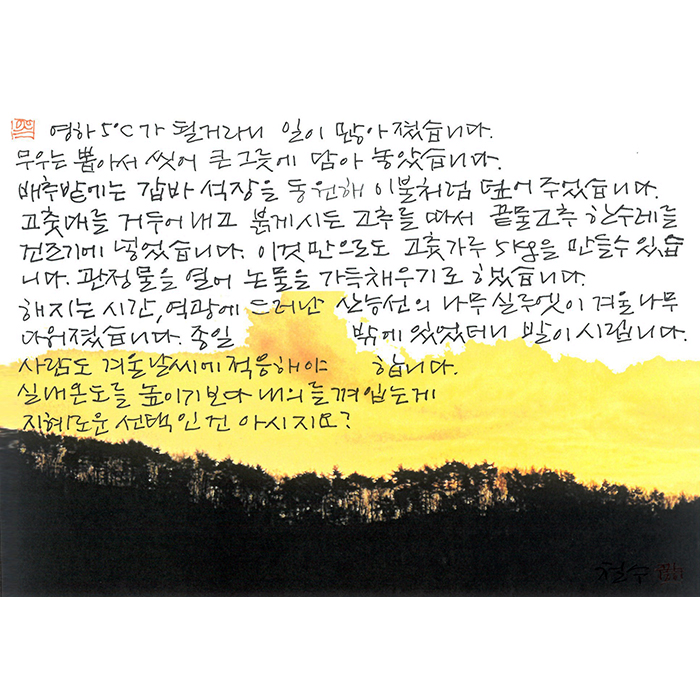 영하 5℃가 될거라니 일이 많아졌습니다.
무우는 뽑아서 씻어 큰 그릇에 담아 놓았습니다.
배추밭에는 갑바 석장을 동원해 이불처럼 덮어 주었습니다.
고춧대를 거두어 내고 붉게시든 고추를 따서 끝물고추 한수레를
건조기에 넣었습니다. 이것만으로도 고춧가루 5kg을 만들수 있습
니다. 관정물을 열어 논물을 가득채우기로 했습니다.
해지는 시간, 역광에 드러난 산능선의 나무 실루엣이 겨울나무
다워졌습니다. 종일 밖에 있었더니 발이 시렵니다.
사람도 겨울날씨에 적응해야 합니다.
실내온도를 높이기보다 내의를 껴입는게
지혜로운 선택인건 아시지요?
철수